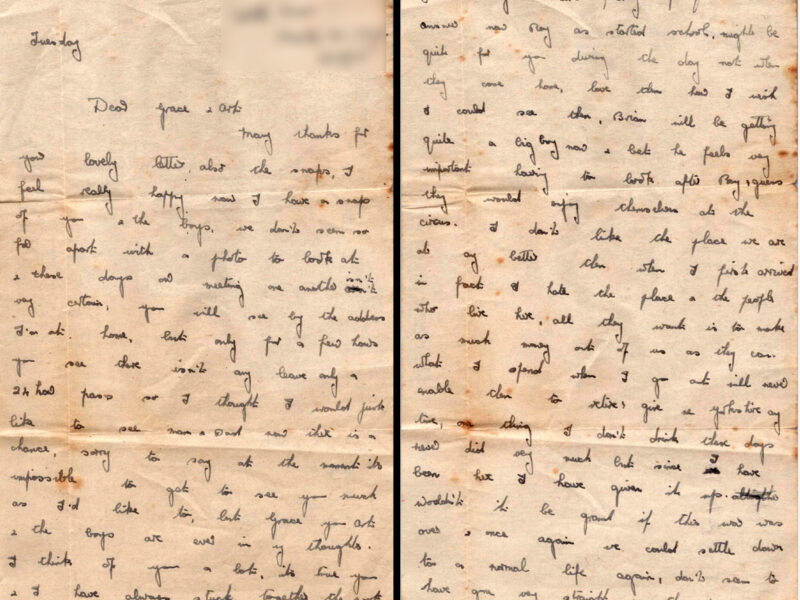 Tuesday
Dear Grace & Art
Many thanks for
your lovely letter, also the snaps, I
feel really happy now I have a snap
of you & the boys, we don't seem so
far apart with a photo to look at
& these days our meeting one another isn't
very certain, you will see by the address
I'm at home, but only for a few hours
you see there isn't any leave only a
24 hour pass so I thought I would just
like to see mam & Dad now there is a
chance, sorry to say at the moment its
impossible to get to see you much
as I'd like to, but Grace you Art
& the boys are ever in my thoughts.
I think of you a lot, its true you
& I have always stuck together the
answer now Roy as started school, might be
quite for you during the day not when
they come home, love them how I wish
I could see them, Brian will be getting
quite a big boy now & bet he feels very
important having to look after Roy, guess
they would enjoy themselves at the
circus. I don't like the place we are
at any better then when I first arrived
in fact I hate the place & the people
who live here, all they want is to make
as much money out of us as they can.
what I spend when I go out will never
enable them to retire, give me yorkshire any
time, one thing I don't drink these days
never did very much but since I have
been here I have given it up.
wouldn't it be grand if this war was
over & once again we could settle down
to a normal life again, don't seem to
have gone very straight